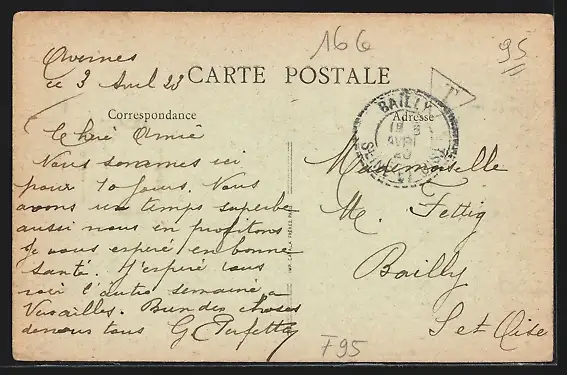 166
95
Avernes
ce 3 Avril 23
CARTE POSTALE
T
Correspondance
Adresse
BAILLY
AVRIL
23
SEINE-ET-OISE
Amie
Nous sommes ici
pour 10 jours. Nous
avons un temps superbe
aussi nous en profitons
Je vous espère en bonne
santé. J'espère vous
voir l'autre semaine a
Versailles. Bien des choses
de nous tous G.
Mademoiselle
M. Fettig
Bailly
S et Oise
F95